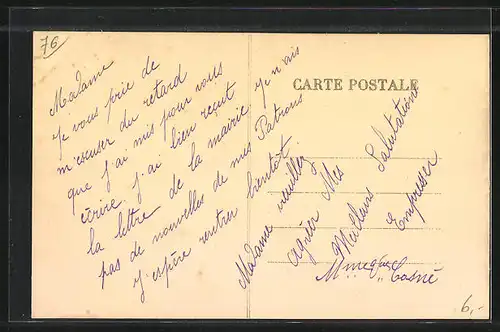 76
CARTE POSTALE
Madame
Je vous prie de
m'escuser du retard
que j'ai mis pour vous
écrire j'ai bien reçut
la lettre de la mairie Je n'ais
pas de nouvelles de mes Patrons
J'espère rentrer bientôt.
Madame veuillez
agréer Mes
Meilleurs Salutations
Empresser
Cosné
6,-